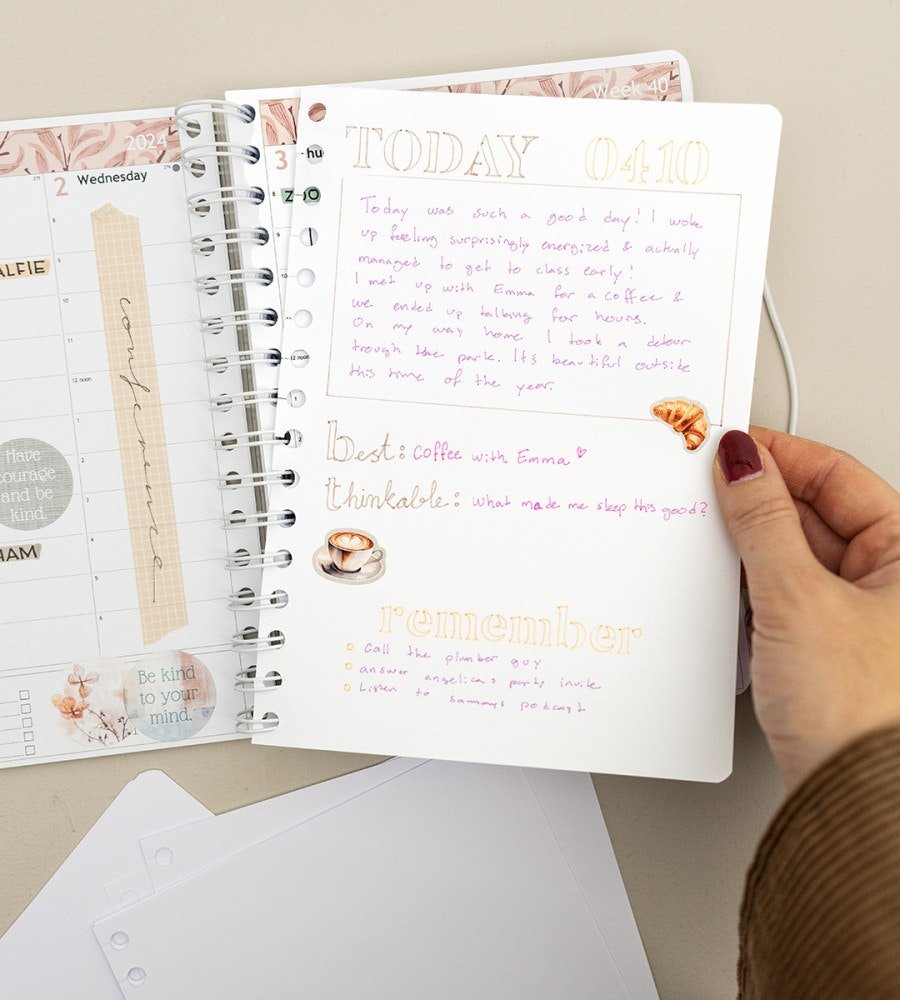 2024
2 Wednesday
ALFIE
conference
Have
courage
and be
kind.
HAM
Be kind
to your
mind.
8
9
10
12 noon
2
3
4
5
6
Week 40
3
hu
ZOO
8
9
10
12 noon
1
2
TODAY 0410
Today was such a good day! I woke
up feeling surprisingly energized & actually
managed to get to class early!
I met up with Emma for a coffee &
we ended up talking for hours.
On my way home I took a detour
trough the park. It's beautiful outside
this time of the year.
best: Coffee with Emma ♡
thinkable: what made me sleep this good?
remember
Call the plumber guy
answer angelica's party invite
Listen to
sammys podcast